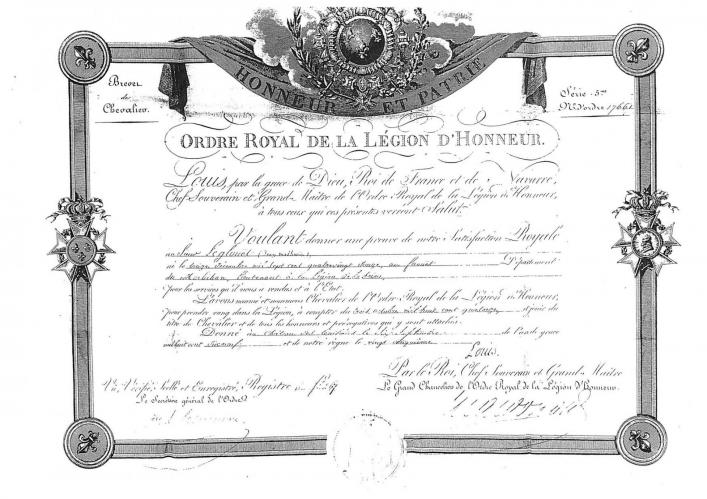 HONNEUR ET PATRIE
Brevet
de
Chevalier.
Série 5me
No. d'ordre 17661
ORDRE ROYAL DE LA LÉGION D'HONNEUR.
Louis, par la grace de Dieu, Roi de France et de Navarre,
Chef Souverain et Grand-Maître de l'Ordre Royal de la Légion d'Honneur,
à tous ceux qui ces présentes verront Salut.
Voulant donner une preuve de notre Satisfaction Royale
au Sieur
né le Décembre mil sept cent quatre vingt au Département
du Morbihan, Lieutenant à la Légion de
pour les services qu'il nous a rendus et à l'État,
L'avons nommé et nommons Chevalier de l'Ordre Royal de la Légion d'Honneur,
pour prendre rang dans la Légion, à compter du mil huit cent quatorze et jouir du
titre de Chevalier et de tous les honneurs et prérogatives qui y sont attachés.
Donné au château des de l'an de grace
mil huit cent et de notre règne le vingt
Louis.
Par le Roi, Chef Souverain et Grand-Maître
Le Grand Chancelier de l'Ordre Royal de la Légion d'Honneur.
Vu, Vérifié, Scellé et Enregistré, Registre fo. 67
Le Secrétaire général de l'Ordre